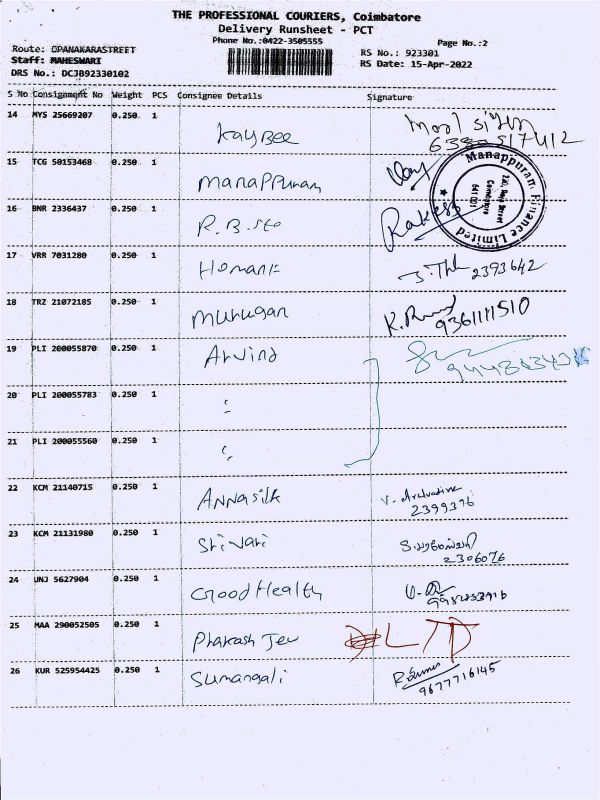 THE PROFESSIONAL COURIERS, Coimbatore
Delivery Runsheet - PCT
Phone No.:0422-3505555
Page No.:2
Route: OPANAKARASTREET
Staff: MAHESWARI
DRS No.: DCJB92330102
RS No.: 923301
RS Date: 15-Apr-2022
S No Consignment No Weight PCS Consignee Details Signature
14 MYS 25669207 0.250 1 KayBee
15 TCG 50153468 0.250 1 Manappuram
Manappuram Finance Limited
Coimbatore
16 BNR 2336437 0.250 1 R.B. Sto Rakesh
17 VRR 7031280 0.250 1 Hemant 2393642
18 TRZ 21072185 0.250 1 Murugan
9361111510
19 PLI 200055870 0.250 1 Arvind
20 PLI 200055783 0.250 1 "
21 PLI 200055560 0.250 1 "
22 KCM 21140715 0.250 1 Annasilk
2399376
23 KCM 21131980 0.250 1 Srivari
2306076
24 UNJ 5627904 0.250 1 Good Health
25 MAA 290052505 0.250 1 Prakash Jew LTD
26 KUR 525954425 0.250 1 Sumangali
9677716145